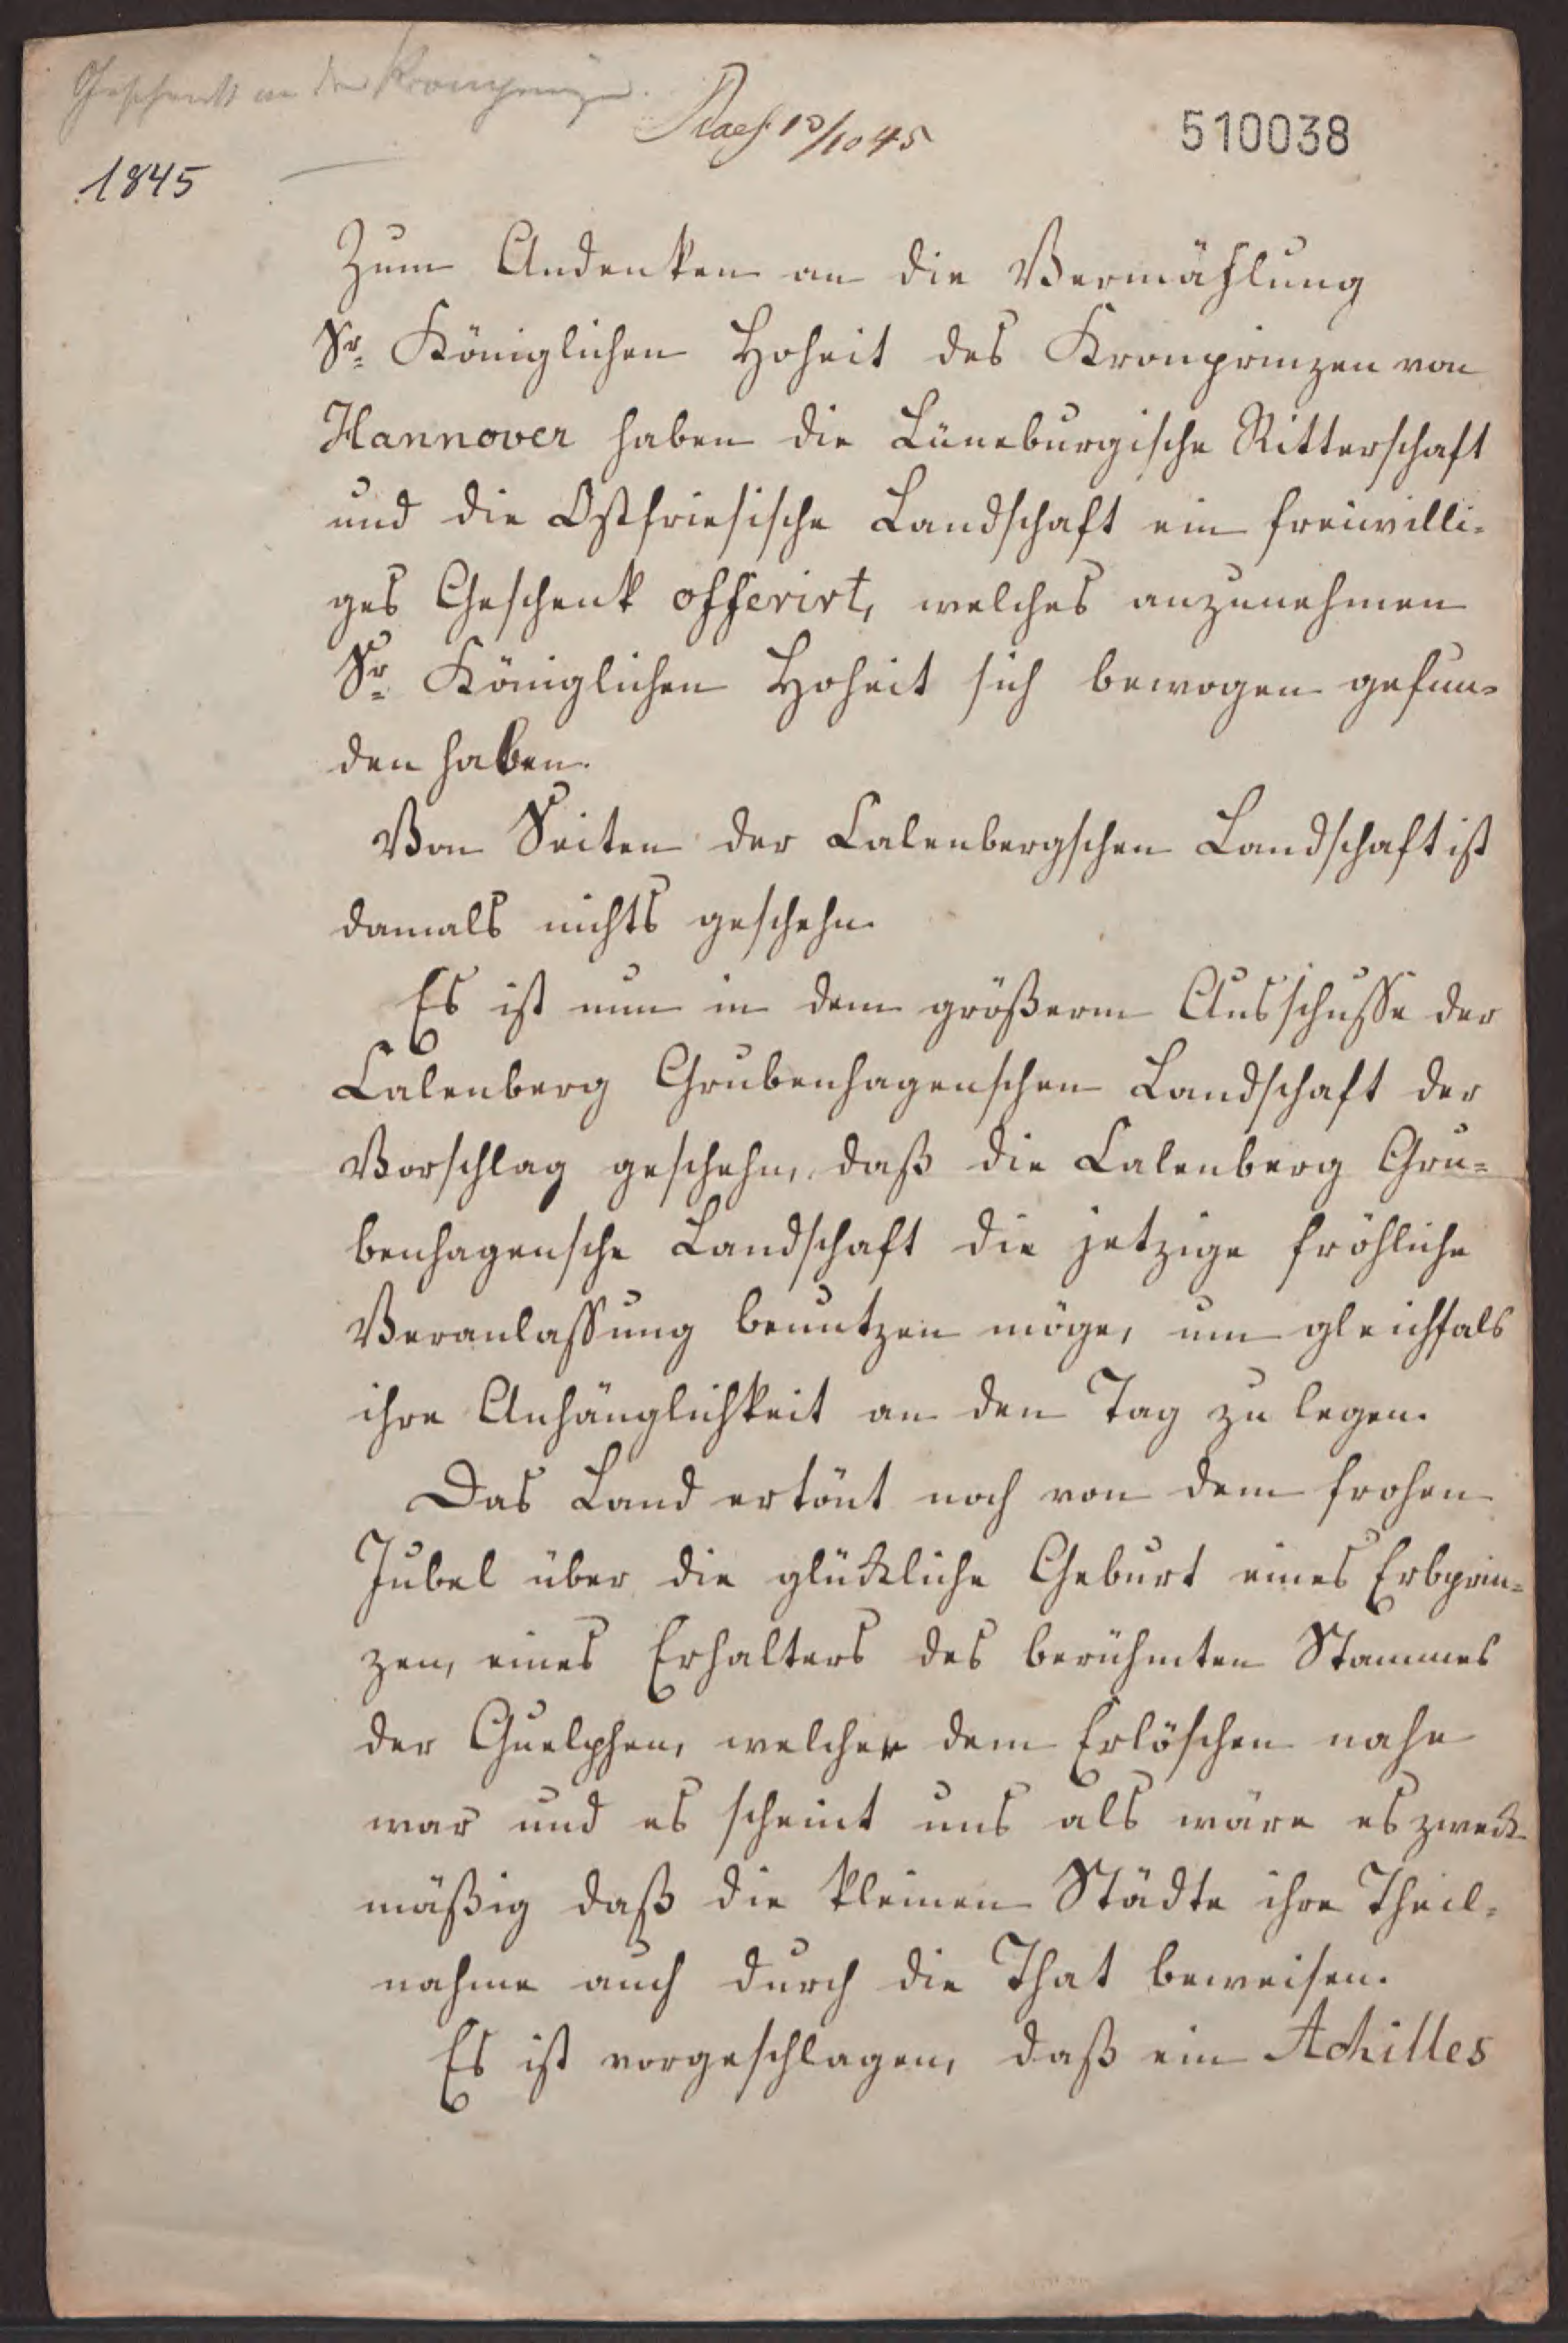 Geschenk an den Kronprinzen.
Praes. 10/10 45
510038
1845
Zum Andenken an die Vermählung
Sr. Königlichen Hoheit des Kronprinzen von
Hannover haben die Lüneburgische Ritterschaft
und die Ostfriesische Landschaft ein freiwilli-
ges Geschenk offerirt, welches anzunehmen
Sr. Königlichen Hoheit sich bewogen gefun-
den haben.
Von Seiten der Calenbergschen Landschaft ist
damals nichts geschehn.
Es ist nun in dem größerm Ausschusse der
Calenberg Grubenhagenschen Landschaft der
Vorschlag geschehn, daß die Calenberg Gru-
benhagensche Landschaft die jetzige fröhliche
Veranlassung benutzen möge, um gleichfals
ihre Anhänglichkeit an den Tag zu legen.
Das Land ertönt noch von dem frohen
Jubel über die glückliche Geburt eines Erbprin-
zen, eines Erhalters des berühmten Stammes
der Guelphen, welcher dem Erlöschen nahe
war und es scheint uns als wäre es zweck
mäßig daß die kleinen Städte ihre Theil-
nahme auch durch die That beweisen.
Es ist vorgeschlagen, daß ein Achilles